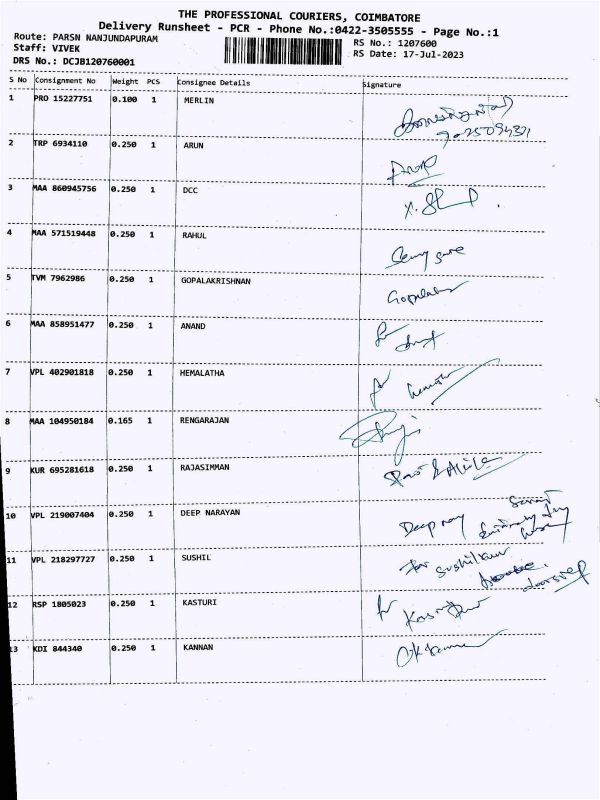 THE PROFESSIONAL COURIERS, COIMBATORE
Delivery Runsheet - PCR - Phone No.:0422-3505555 - Page No.:1
Route: PARSN NANJUNDAPURAM RS No.: 1207600
Staff: VIVEK RS Date: 17-Jul-2023
DRS No.: DCJB120760001
S No Consignment No Weight PCS Consignee Details Signature
1 PRO 15227751 0.100 1 MERLIN
2 TRP 6934110 0.250 1 ARUN
3 MAA 860945756 0.250 1 DCC
4 MAA 571519448 0.250 1 RAHUL
5 TVM 7962986 0.250 1 GOPALAKRISHNAN
6 MAA 858951477 0.250 1 ANAND
7 VPL 402901818 0.250 1 HEMALATHA
8 MAA 104950184 0.165 1 RENGARAJAN
9 KUR 695281618 0.250 1 RAJASIMMAN
10 VPL 219007404 0.250 1 DEEP NARAYAN
11 VPL 218297727 0.250 1 SUSHIL
12 RSP 1805023 0.250 1 KASTURI
13 KDI 844340 0.250 1 KANNAN